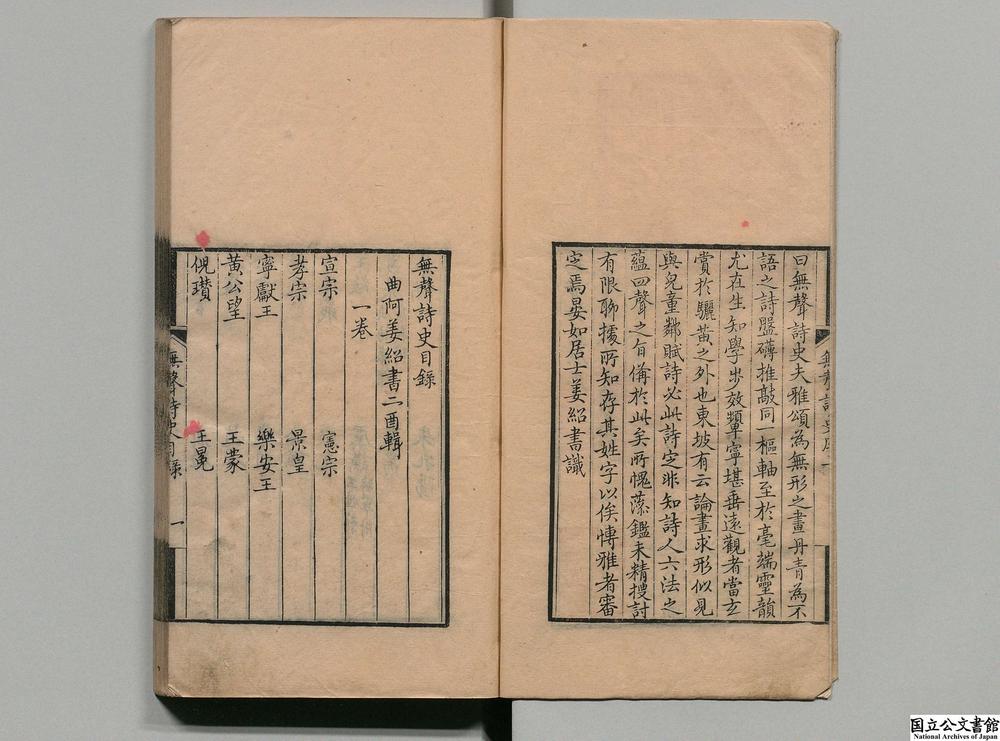 曰無聲詩史夫雅頌為無形之畫丹青為不
語之詩盤礴推敲同一樞軸至於毫端靈韻
尤在生知學步效顰寧堪垂遠觀者當玄
賞於驪黃之外也東坡有云論畫求形似見
與兒童鄰賦詩必此詩定非知詩人六法之
蘊四聲之旨備於此矣所愧藻鑑未精搜討
有限聊據所知存其姓字以俟博雅者審
定焉晏如居士姜紹書識
無聲詩史目錄
曲阿姜紹書二酉輯
一卷
宣宗 憲宗
孝宗 景皇
寧獻王 樂安王
黃公望 王蒙
倪瓚 王冕
無聲詩史目錄 一
国立公文書館
National Archives of Japan